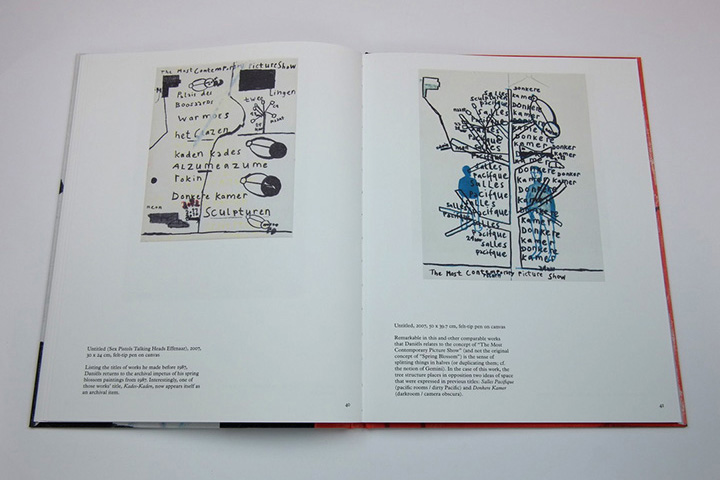 The Most Contemporary Picture Show
Palais des
Boosaards
twee
Lingen
Warmoes
het Glazen
kaden kades
ALZUMENZUME
Rokin
Donkere Kamer
Sculpturen
Untitled (Sex Pistols Talking Heads Effenaar), 2007,
30 x 24 cm, felt-tip pen on canvas
Listing the titles of works he made before 1987,
Daniëls returns to the archival impetus of his spring
blossom paintings from 1987. Interestingly, one of
those works' title, Kades-Kaden, now appears itself as
an archival item.
Donkere
Kamer
Donkere
Kamer
Donkere
Kamer
Donker
Kamer
Donker
Kamer
Donkere
Kamer
Donkere
Kamer
Donkere
Kamer
Donkere
Kamer
Salles
sculpturen
pacifique
Salles
pacifique
Salles
Pacifique
Salles
Pacifique
Salles
Pacifique
Salles
Pacifique
Salles
Pacifique
Salles
pacifique
The Most Contemporary Picture Show
Untitled, 2007, 50 x 39.7 cm, felt-tip pen on canvas
Remarkable in this and other comparable works
that Daniëls relates to the concept of "The Most
Contemporary Picture Show" (and not the original
concept of "Spring Blossom") is the sense of
splitting things in halves (or duplicating them; cf.
the notion of Gemini). In the case of this work, the
tree structure places in opposition two ideas of space
that were expressed in previous titles: Salles Pacifique
(pacific rooms / dirty Pacific) and Donkere Kamer
(darkroom / camera obscura).